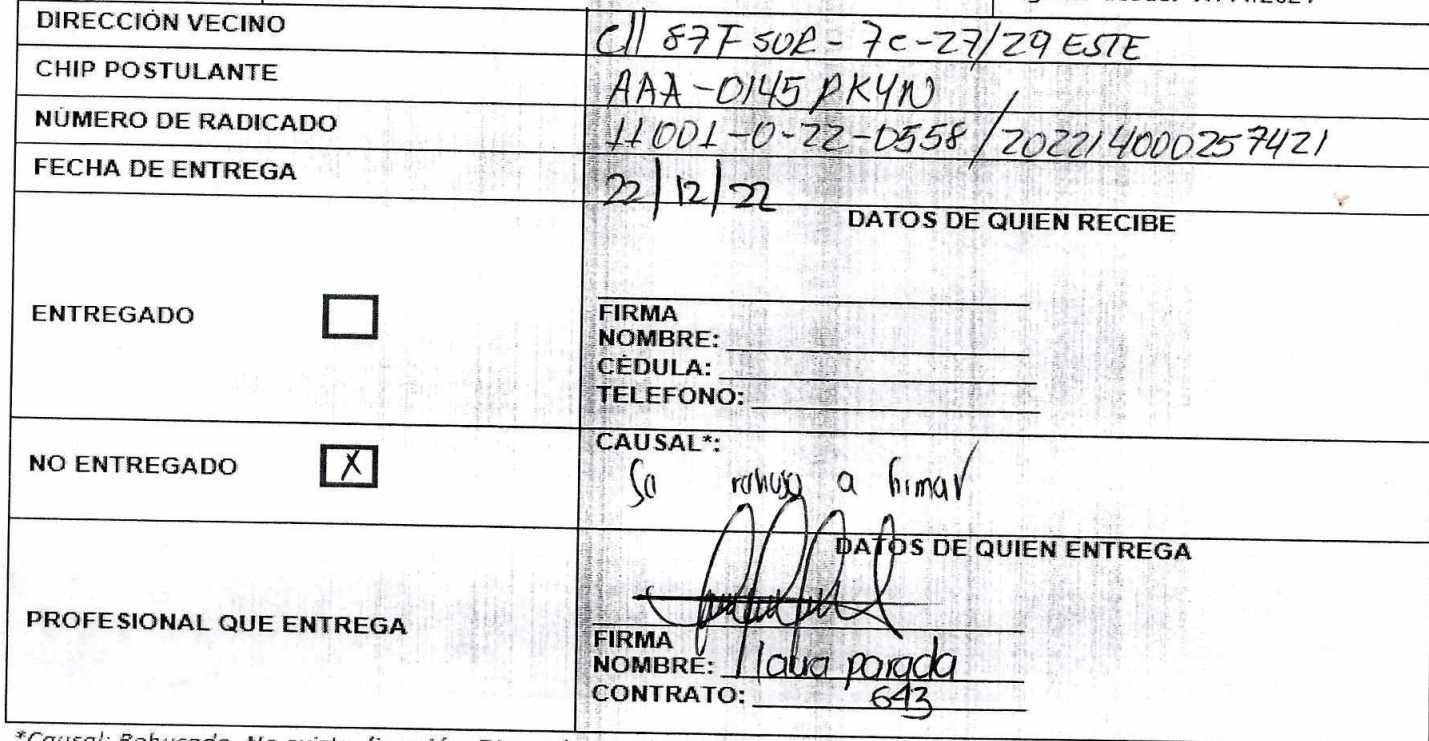 DIRECCIÓN VECINO cll 87F SUR - 7c-27/29 ESTE
CHIP POSTULANTE AAA-0145PKYN
NÚMERO DE RADICADO 11001-0-22-0558/202214000257421
FECHA DE ENTREGA 22/12/22
DATOS DE QUIEN RECIBE
ENTREGADO
FIRMA
NOMBRE:
CÉDULA:
TELEFONO:
NO ENTREGADO X
CAUSAL*:
Se rehusa a firmar
DATOS DE QUIEN ENTREGA
PROFESIONAL QUE ENTREGA
FIRMA
NOMBRE: parada
CONTRATO: 643
*Causal: Rehusado, No existe dirección,